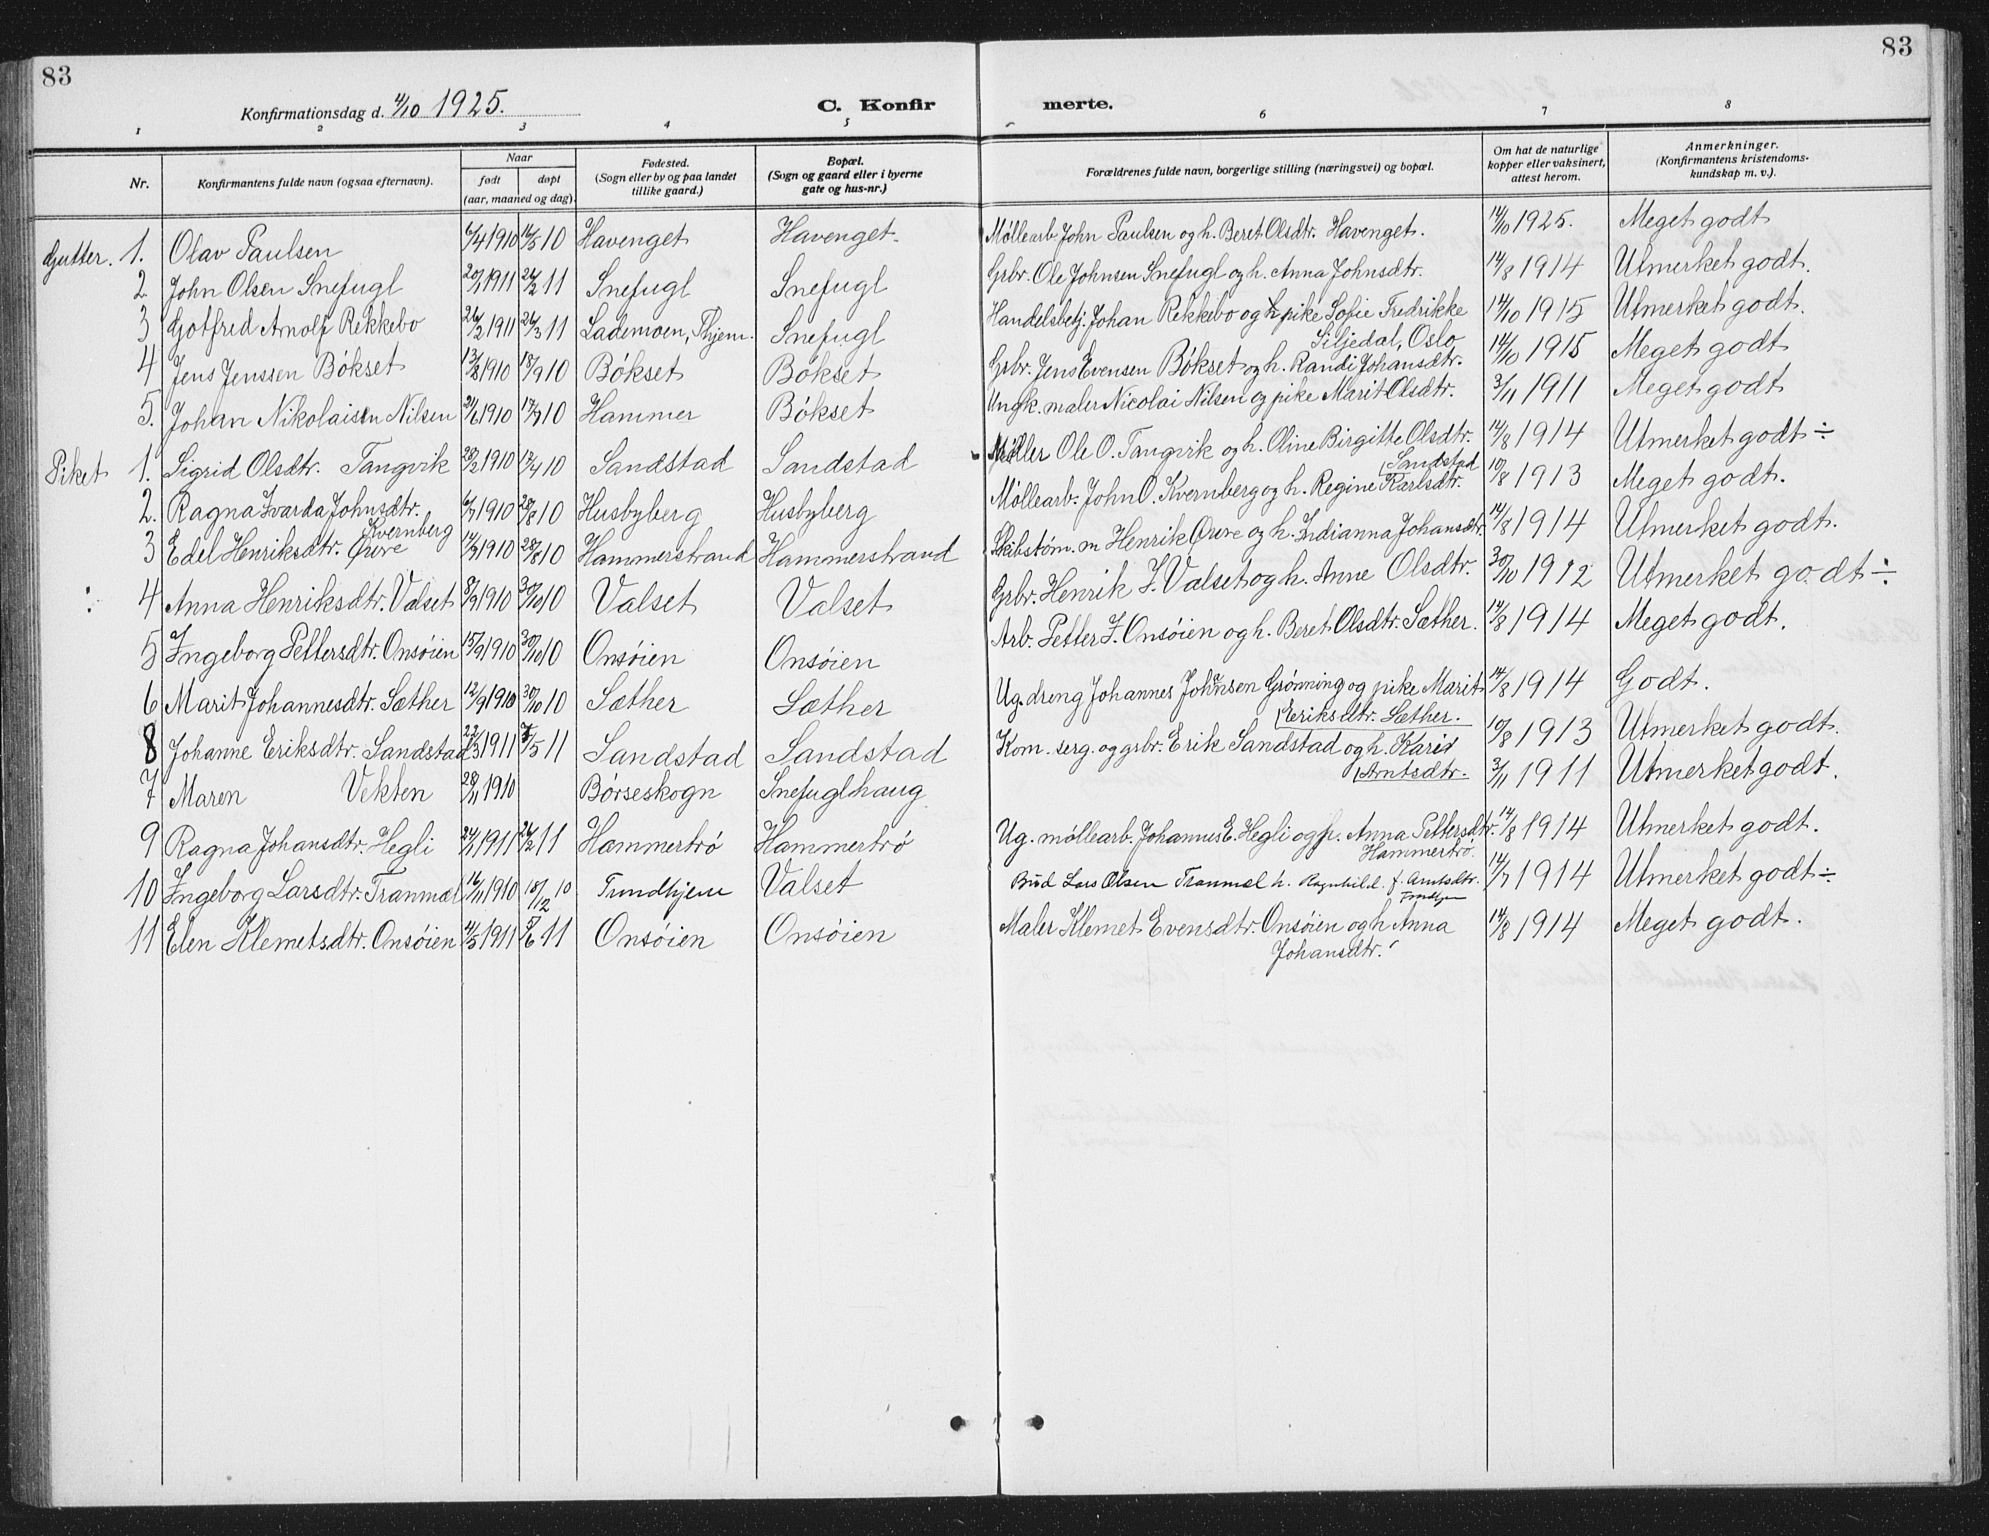 83
83
Konfirmationsdag d. 4/10 1925.
C. Konfirmerte.
1 2 3 4 5 6 7 8
Nr.
Konfirmantens fulde navn (ogsaa efternavn).
Naar
født døpt
(aar, maaned og dag).
Fødested.
(Sogn eller by og paa landet
tillike gaard.)
Bopæl.
(Sogn og gaard eller i byerne
gate og hus-nr.)
Forældrenes fulde navn, borgerlige stilling (næringsvei) og bopæl.
Om hat de naturlige
kopper eller vaksinert,
attest herom.
Anmerkninger.
(Konfirmantens kristendoms-
kundskap m. v.).
Gutter. 1. Olav Paulsen 6/4 1910 16/5 10 Havenget Havenget. Møllearb John Paulsen og h. Beret Olsdtr. Havenget. 14/10 1925. Meget godt
2 John Olsen Snefugl 20/1 1911 26/2 11 Snefugl Snefugl Grbr. Ole Johnsen Snefugl og h. Anna Johnsdtr. 14/8 1914 Utmerket godt.
3 Gotfred Arnolf Rekkebo 26/2 1911 26/3 11 Lademoen, Thjem. Snefugl Handelsbetj. Johan Rekkebo og pike Sofie Fredrikke 14/10 1915 Utmerket godt.
Siljedal, Oslo
4 Jens Jenssen Bókset 13/8 1910 18/9 10 Bókset Bókset Grbr. Jens Evensen Bókset og h. Randi Johansdtr. 14/10 1915 Meget godt
5. Johan Nikolaisen Nilsen 21/6 1910 17/7 10 Hammer Bókset Ungk. maler Nicolai Nilsen og pike Marit Olsdtr. 3/11 1911 Meget godt
Piket 1. Sigrid Olsdtr. Tangvik 28/2 1910 17/4 10 Sandstad Sandstad Møller Ole O. Tangvik og h. Oline Birgitte Olsdtr. 14/8 1914 Utmerket godt ÷
Sandstad
2. Ragna Zvarda Johnsdtr. 6/7 1910 28/8 10 Husbyberg Husbyberg Møllearb. John O. Kvernberg og h. Regine Karlsdtr. 10/8 1913 Meget godt.
Kvernberg
3 Edel Henriksdtr. Øreve 14/7 1910 28/8 10 Hammerstrand Hammerstrand Skibstøm. m Henrik Øreve og h. Indianna Johansdtr. 14/8 1914 Utmerket godt.
4 Anna Henriksdtr. Valset 8/9 1910 30/10 10 Valset Valset Grbr. Henrik J. Valset og h. Anne Olsdtr. 30/10 1912 Utmerket godt ÷
5 Ingeborg Pettersdtr. Onsóien 15/9 1910 30/10 10 Onsóien Onsóien Arb. Petter J. Onsóien og h. Beret Olsdtr. Sæther. 14/8 1914 Meget godt.
6 Marit Johannesdtr. Sæther 12/9 1910 30/10 10 Sæther Sæther Ug. dreng Johannes Johansen Grønning og pike Marit 14/8 1914 Godt.
Eriksdtr. Sæther.
8 Johanne Eriksdtr. Sandstad 22/3 1911 7/5 11 Sandstad Sandstad Kom. serg. og grbr. Erik Sandstad og h. Kari 10/8 1913 Utmerket godt.
Arntsdtr.
7 Maren Vekten 28/11 1910 Børseskogn Snefuglhaug 3/11 1911 Utmerket godt.
9 Ragna Johansdtr. Hegli 24/1 1911 26/2 11 Hammertrö Hammertrö Ug. móllearb. Johannus E. Hegli og p. Anna Pettersdtr. 14/8 1914 Utmerket godt.
Hammertrö.
10 Ingeborg Larsdtr. Tranmæl 16/11 1910 18/12 10 Trondhjem Valset Bud Lars Olsen Tranmæl h. Ragnhild f. Arntsdtr. 14/7 1914 Utmerket godt ÷
Trondhjem
11 Elen Klemetsdtr. Onsóien 4/5 1911 5/6 11 Onsóien Onsóien Maler Klemet Evensdtr. Onsóien og h Anna 14/8 1914 Meget godt.
Johansdtr.